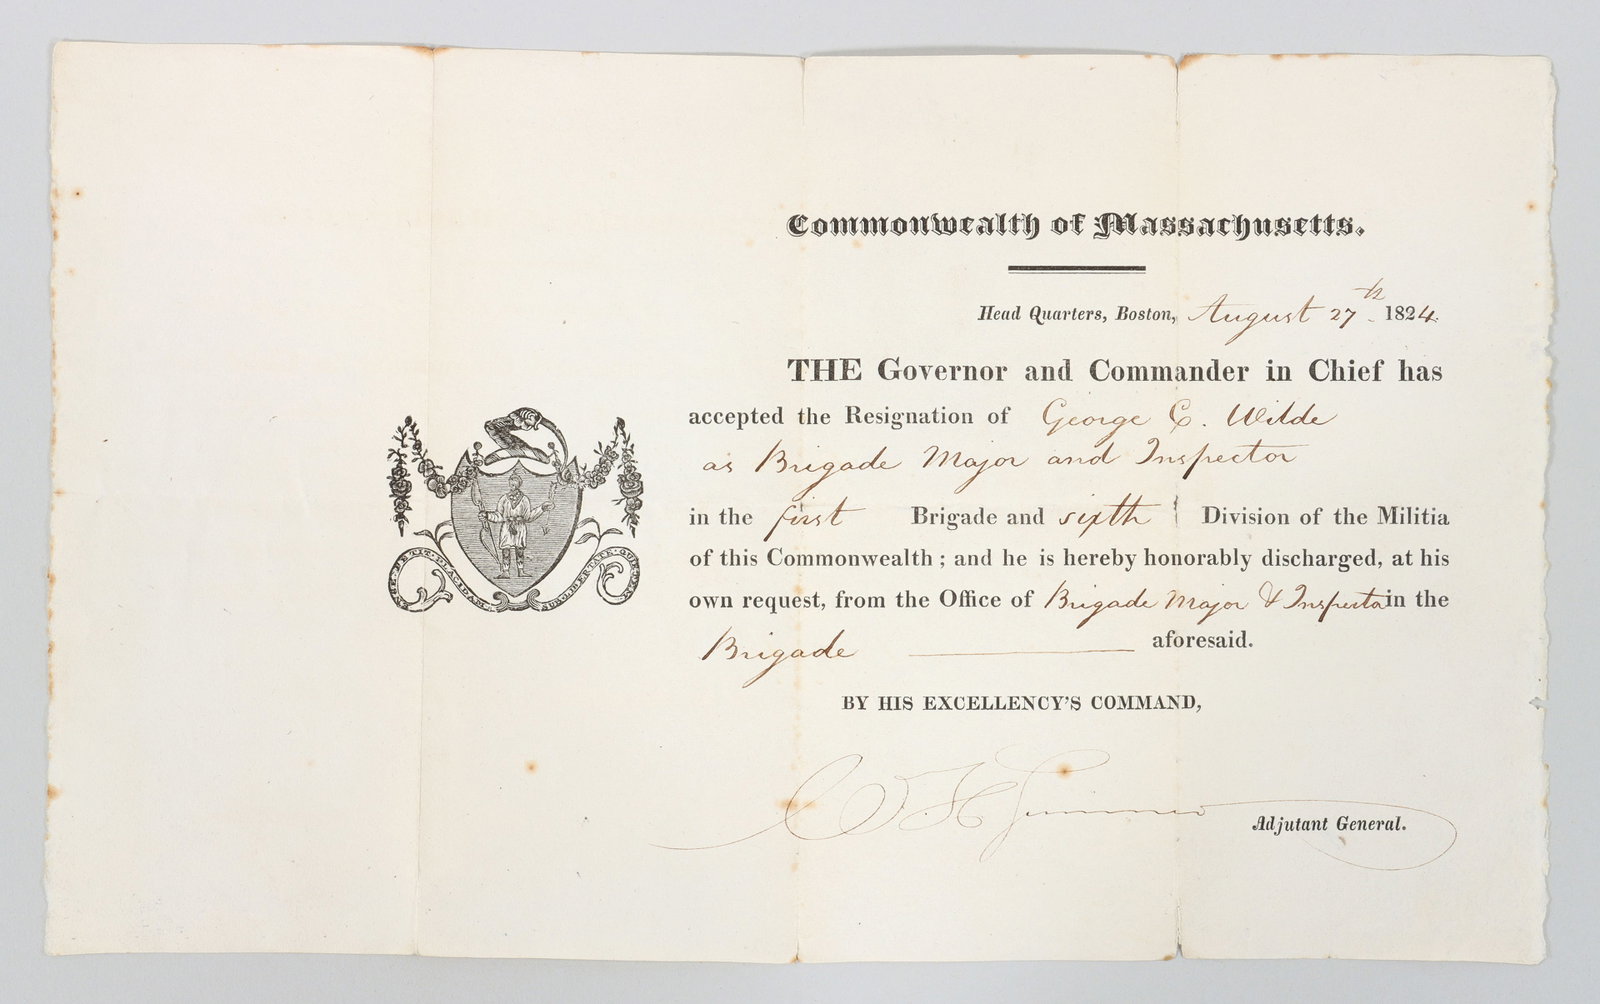 Commonwealth of Massachusetts.
Head Quarters, Boston, August 27th 1824.
THE Governor and Commander in Chief has
accepted the Resignation of George C. Wilde
as Brigade Major and Inspector
in the first Brigade and sixth Division of the Militia
of this Commonwealth; and he is hereby honorably discharged, at his
own request, from the Office of Brigade Major & Inspector in the
Brigade aforesaid.
BY HIS EXCELLENCY'S COMMAND,
W H Sumner
Adjutant General.
ENSE PETIT PLACIDAM SUB LIBERTATE QUIETEM